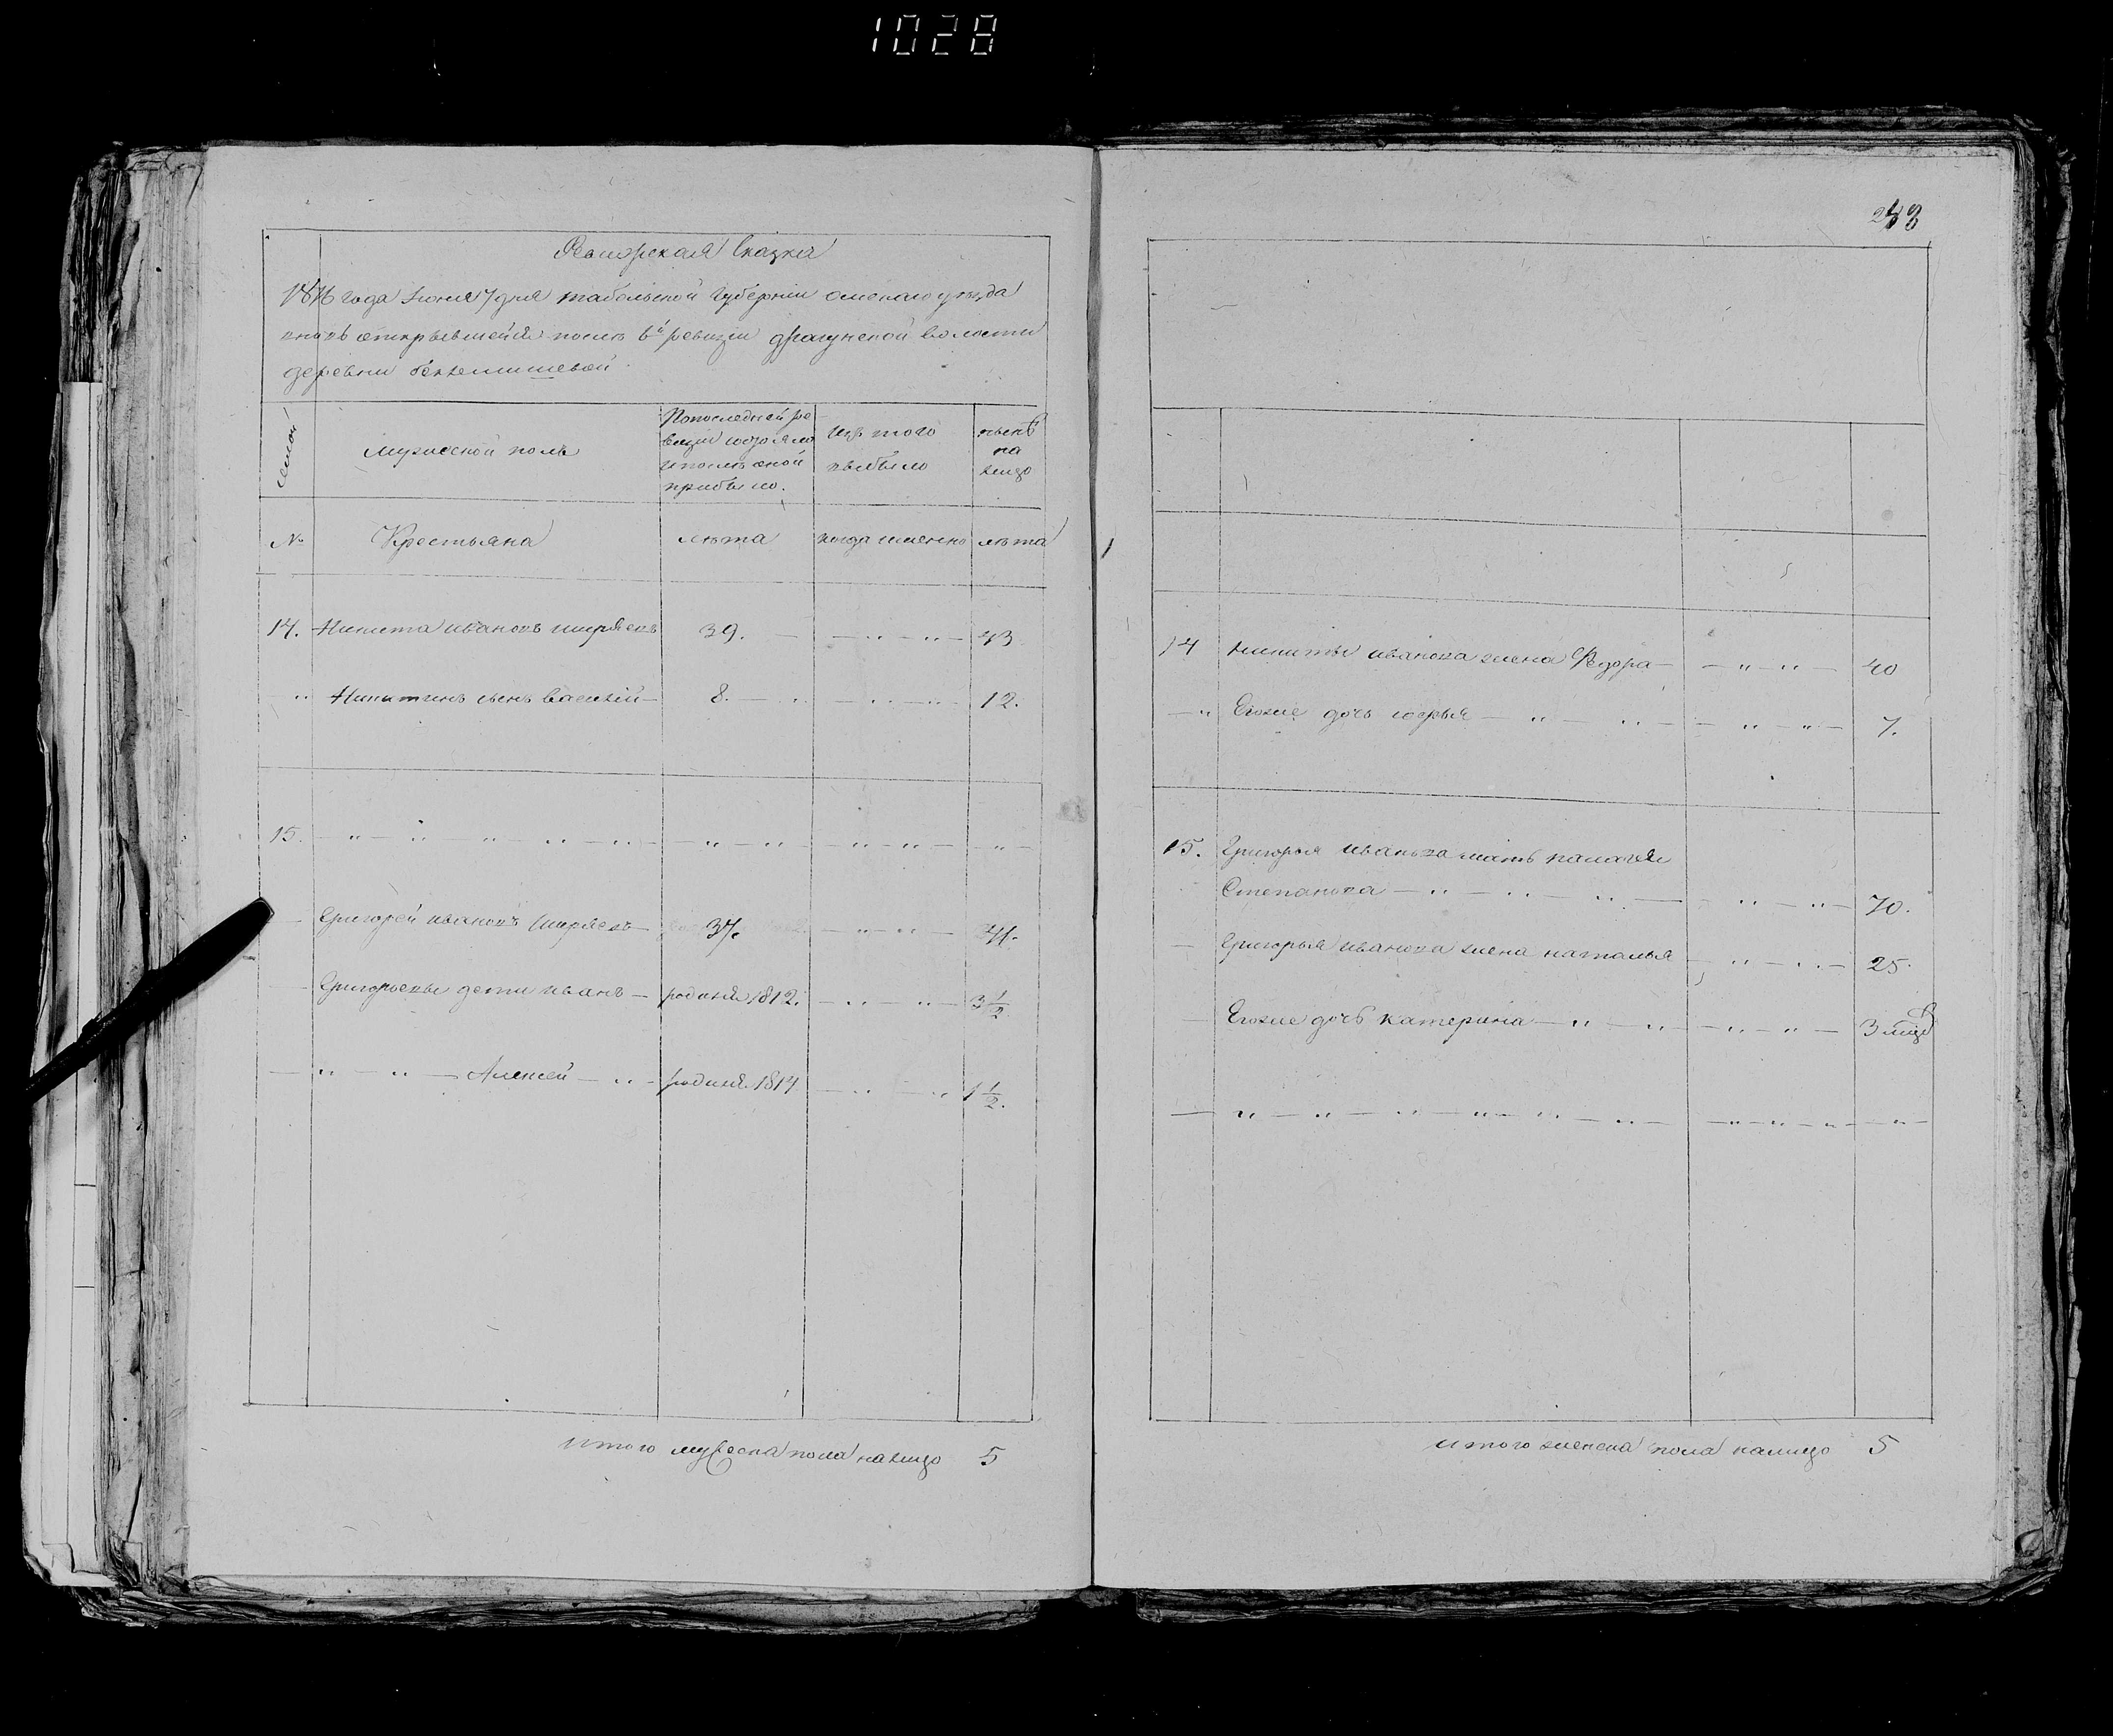 1028
Ревизская Сказка
1816 года Июня 7 дня табольской губернии омскаго уезда
вновь открывшейся после 6й ревизии драгунской волости
деревни бекшемишевой
семьи
мужеской полъ
Попоследней ре
визии состояло
и после оной
прибыло.
изъ того
выбыло
ныне
на
лицо
№
Крестьяна
лета
когда именно
лета
14. Никита ивановъ ширяевъ 39. — — " — " — 43
" Никитинъ сынъ василий — 8. — " — " — " — 12.
15. — " — " — " — " — " — — " — " — " — " — — " —
— Григорей ивановъ ширяевъ — 37. — " — " — 41.
— Григорьевы дети иванъ — родился 1812. — " — " — 3 1/2
— " — " — Алексей — " — родился 1814 — " — " 1 1/2.
итого мужеска пола налицо 5
248
14 никиты иванова жена Федора — — " — " — 40
— " Евоже дочь софья — " — " — — " — " — 7.
15. Григорья иванова мать палагея
Степанова — " — " — " — " — " — 70.
— Григорья иванова жена наталья — " — " — 25.
— Евоже дочь катерина — " — " — " — " — 3 мец
— " — " — " — " — " — " — — " — " — " — — " —
итого женска пола налицо 5